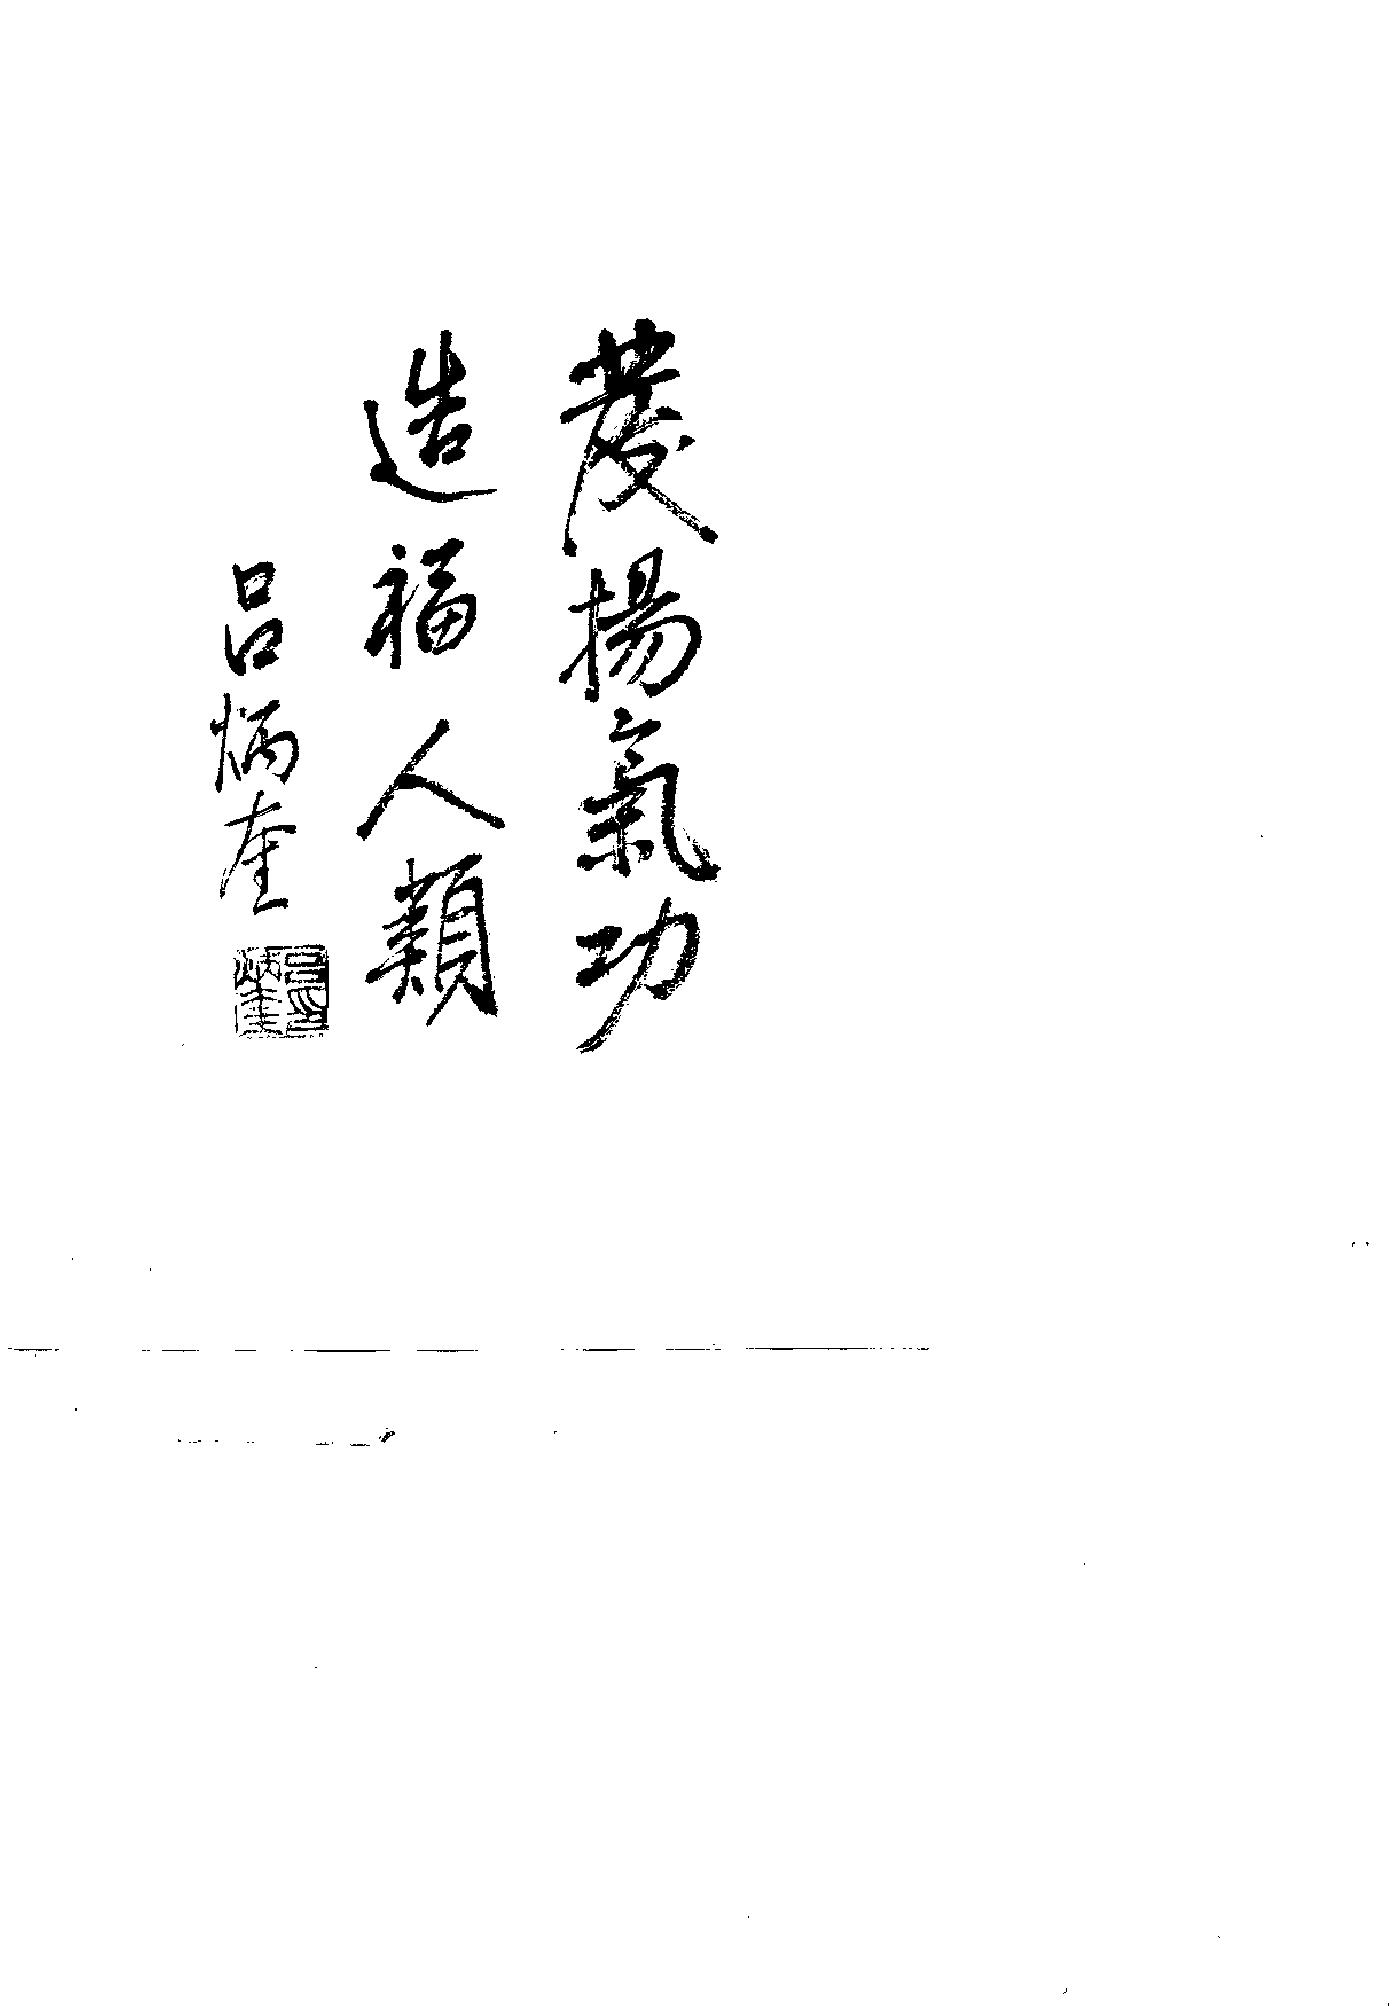 發揚氣功
造福人類
呂炳奎
呂印
炳奎